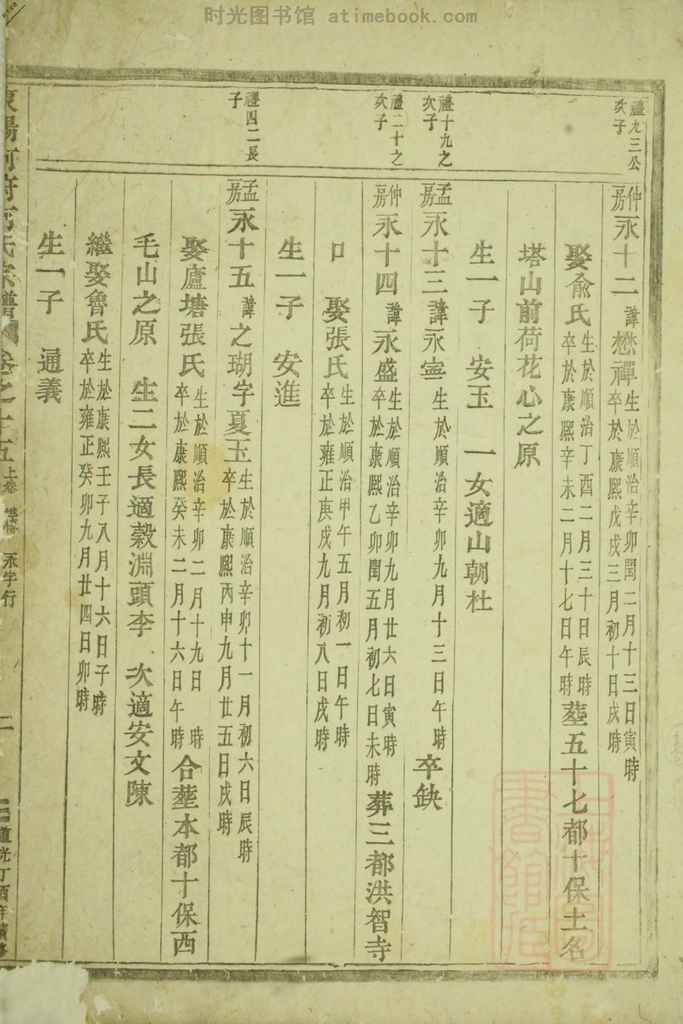 时光图书馆 atimebook.com
禮九三公
次子
仲房永十二 諱懋禪 生於順治辛卯閏二月十三日寅時
卒於康熙戊戌三月初十日戌時
娶俞氏 生於順治丁酉二月三十日辰時
卒於康熙辛未二月十七日午時 塟五十七都十保土名
塔山前荷花心之原
生一子 安玉 一女適山朝杜
禮十九之
次子
孟房永十三 諱永寍 生於順治辛卯九月十三日午時 卒缺
禮二十之
次子
仲房永十四 諱永盛 生於順治辛卯九月廿六日寅時
卒於康熙乙卯閏五月初七日未時 葬三都洪智寺
口 娶張氏 生於順治甲午五月初一日午時
卒於雍正庚戌九月初八日戌時
生一子 安進
禮四二長
子
孟房永十五 諱之瑚字夏玉 生於順治辛卯十一月初六日辰時
卒於康熙丙申九月廿五日戌時
娶廬塘張氏 生於順治辛卯二月十九日 時
卒於康熙癸未二月十六日午時 合塟本都十保西
毛山之原 生二女長適穀淵頭李 次適安文陳
繼娶魯氏 生於康熙壬子八月十六日子時
卒於雍正癸卯九月廿四日卯時
生一子 通義
氏宗譜 卷之十五 上卷 永字行 二 道光丁酉年續修